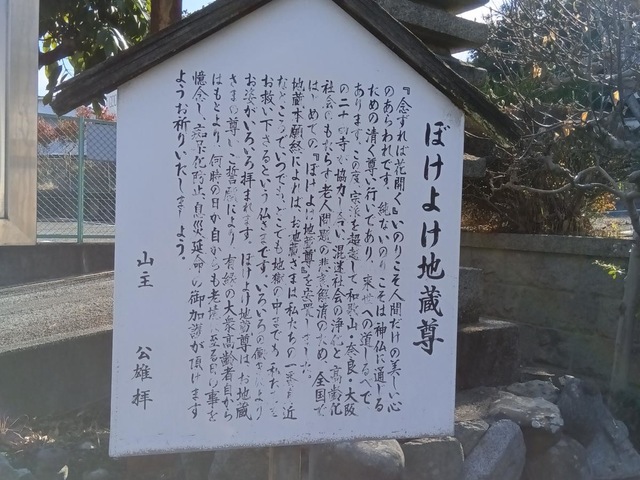 ぼけよけ地蔵尊
『念ずれば花開く』いのりこそ人間だけの美しい心
のあらわれです。純ないのりこそは神仏に通じる
ための清く尊い行いであり、来世への道しるべで
あります。この度、宗派を超越して和歌山・奈良・大阪
の二十四寺が協力を行い、混迷社会の浄化と高齢化
社会のもたらす老人問題の悲苦解消のため、全国で
はじめての『ぼけよけ地蔵尊』を安置しました。
地蔵本願経によれば、お地蔵さまは私たちの一番身近
なところでいつでも、どこでも地獄の中までも私たちを
お救い下さるという仏さまです。いろいろの働きにより
お姿がいろいろ拝まれます。ぼけよけ地蔵尊はお地蔵
さまの尊いご誓願により、有縁の大衆高齢者自から
はもとより、何時の日か自からも老境に至る日の事を
憶念し、老化防止息災延命の御加護が頂けます
ようお祈りいたしましょう。
山主 公雄 拝